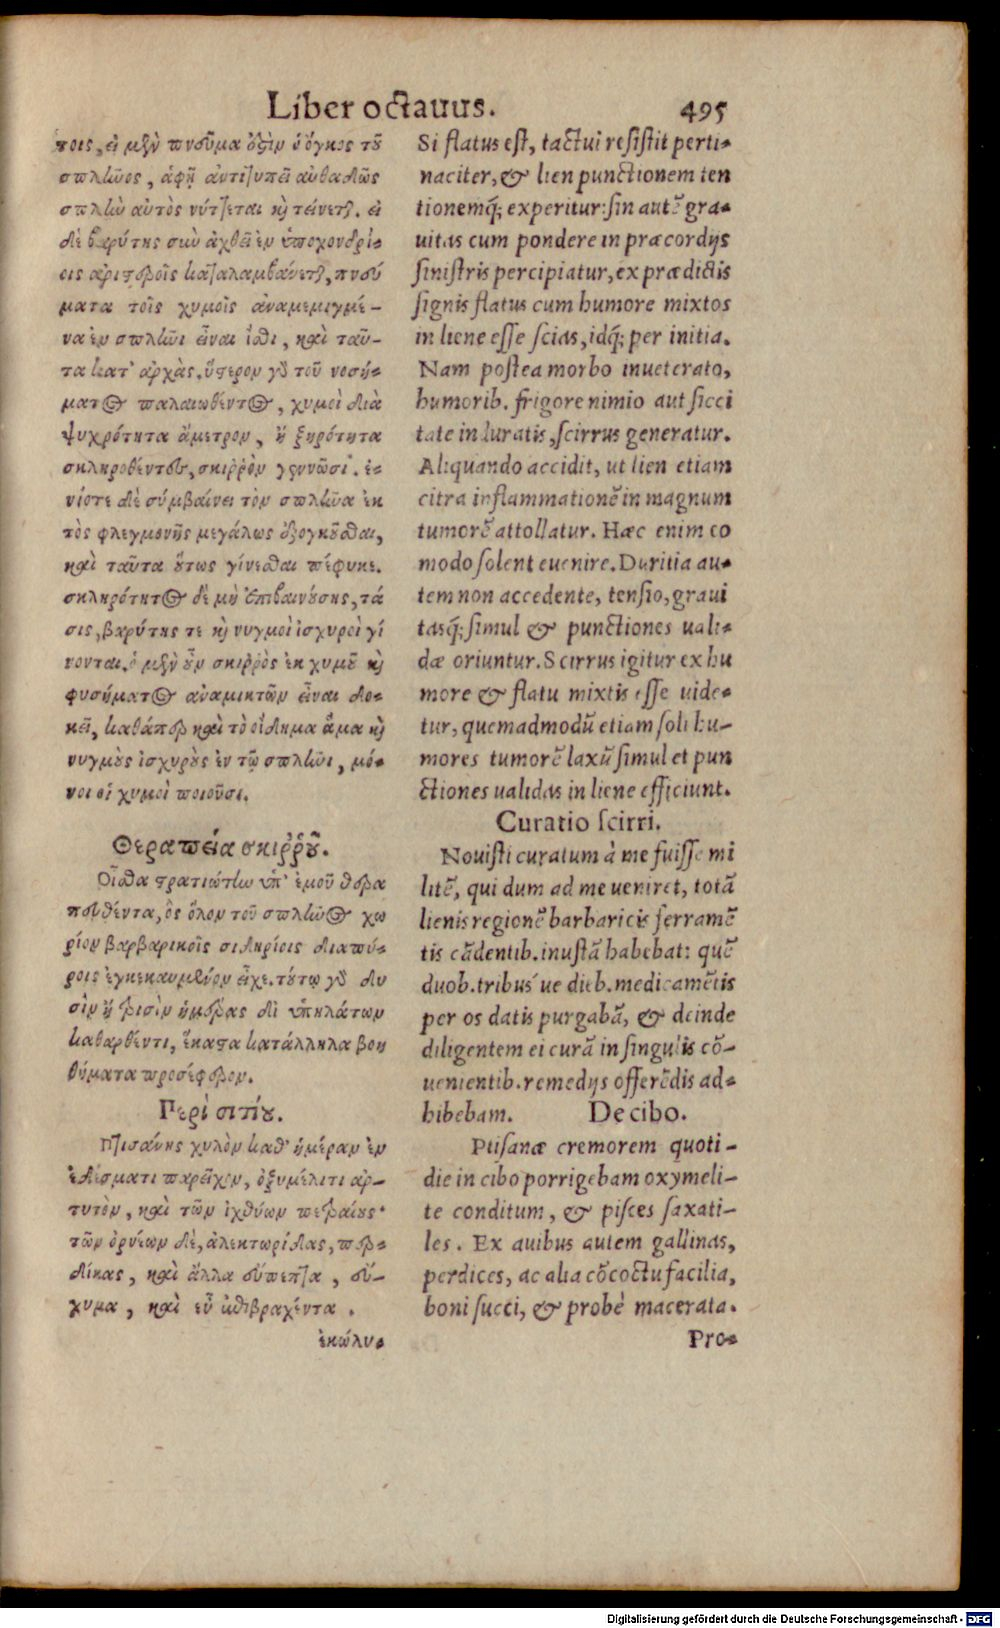 Liber octauus. 495
ποις, εἰ μὲν πνεῦμα ἐστὶν ὁ ὄγκος τοῦ
σπλωὸς, ἀφῇ ἀντιτυπεῖ αὐθαδῶς
σπλὼ αὐτὸς νύττεται καὶ τείνεται. εἰ
δὲ βαρύτης σὺν ἀχθεῖ ἐν ὑποχονδρί-
οις ἀριστεροῖς καταλαμβάνεται, πνεύ
ματα τοῖς χυμοῖς ἀναμεμιγμέ-
να ἐν σπλωὶ εἶναι ἴσθι, καὶ ταῦ-
τα κατ' ἀρχὰς. ὕστερον γὰρ τοῦ νοσή-
ματος παλαιωθέντος, χυμοὶ διὰ
ψυχρότητα ἄμετρον, ἢ ξηρότητα
σκληροθέντες, σκιῤῥὸν γεννῶσι. ἐ-
νίοτε δὲ σύμβαίνει τὸν σπλῶα ἐκ
τὸς φλεγμονῆς μεγάλως ἐξογκοῦσθαι,
καὶ ταῦτα οὕτως γίνεσθαι πέφυκε.
σκληρότητος δὲ μὴ ἐπιβαινούσης, τά
σις, βαρύτης τε καὶ νυγμοὶ ἰσχυροὶ γί
νονται. ὁ μὲν οὖν σκιῤῥὸς ἐκ χυμοῦ καὶ
φυσήματος ἀναμικτῶν εἶναι δο-
κεῖ, καθάπερ καὶ τὸ οἴδημα ἅμα καὶ
νυγμοὺς ἰσχυροὺς ἐν τῷ σπλωὶ, μό-
νοι οἱ χυμοὶ ποιοῦσι.
Θεραπεία σκιῤῥοῦ.
Οἶσθα στρατιώτω ὑπ' ἐμοῦ θερα
πευθέντα, ὃς ὅλον τοῦ σπλωὸς χω
ρίον βαρβαρικοῖς σιδηρίοις διαπύ-
ροις ἐγκεκαυμένον εἶχε. τούτῳ γὰρ δυ
σὶν ἢ τρισὶν ἡμέρας δι' ὑπηλάτων
καθαρθέντι, ἕκαστα κατάλληλα βοη
θύματα προσέφερον.
Περὶ σιτίου.
Πτισάνης χυλὸν καθ' ἡμέραν ἐν
ἐδέσματι παρεῖχον, ὀξυμέλιτι ἀρ-
τυτὸν, καὶ τῶν ἰχθύων πετραίους·
τῶν ὀρνέων δὲ, ἀλεκτωρίδας, περ-
δίκας, καὶ ἄλλα εὔπεπτα, εὔ-
χυμα, καὶ εὖ ἀποβραχέντα.
ἐκώλυ-
Si flatus est, tactui resistit perti-
naciter, & lien punctionem ten
tionemq́; experitur: sin autē gra-
uitas cum pondere in præcordijs
sinistris percipiatur, ex prædictis
signis flatus cum humore mixtos
in liene esse scias, idq́; per initia.
Nam postea morbo inueterato,
humorib. frigore nimio aut sicci
tate induratis, scirrus generatur.
Aliquando accidit, ut lien etiam
citra inflammationē in magnum
tumorē attollatur. Hæc enim co
modo solent euenire. Duritia au-
tem non accedente, tensio, graui
tasq́; simul & punctiones uali-
dæ oriuntur. Scirrus igitur ex hu
more & flatu mixtis esse uide-
tur, quemadmodū etiam soli hu-
mores tumorē laxū simul et pun
ctiones ualidas in liene efficiunt.
Curatio scirri.
Nouisti curatum à me fuisse mi
litē, qui dum ad me ueniret, totā
lienis regionē barbaricis ferramē
tis cādentib. inustā habebat: quē
duob. tribus´ue dieb. medicamētis
per os datis purgabā, & deinde
diligentem ei curā in singulis cō-
uenientib. remedijs offerēdis ad-
hibebam. De cibo.
Ptisanæ cremorem quoti-
die in cibo porrigebam oxymeli-
te conditum, & pisces saxati-
les. Ex auibus autem gallinas,
perdices, ac alia cōcoctu facilia,
boni succi, & probè macerata.
Pro-
Digitalisierung gefördert durch die Deutsche Forschungsgemeinschaft - DFG